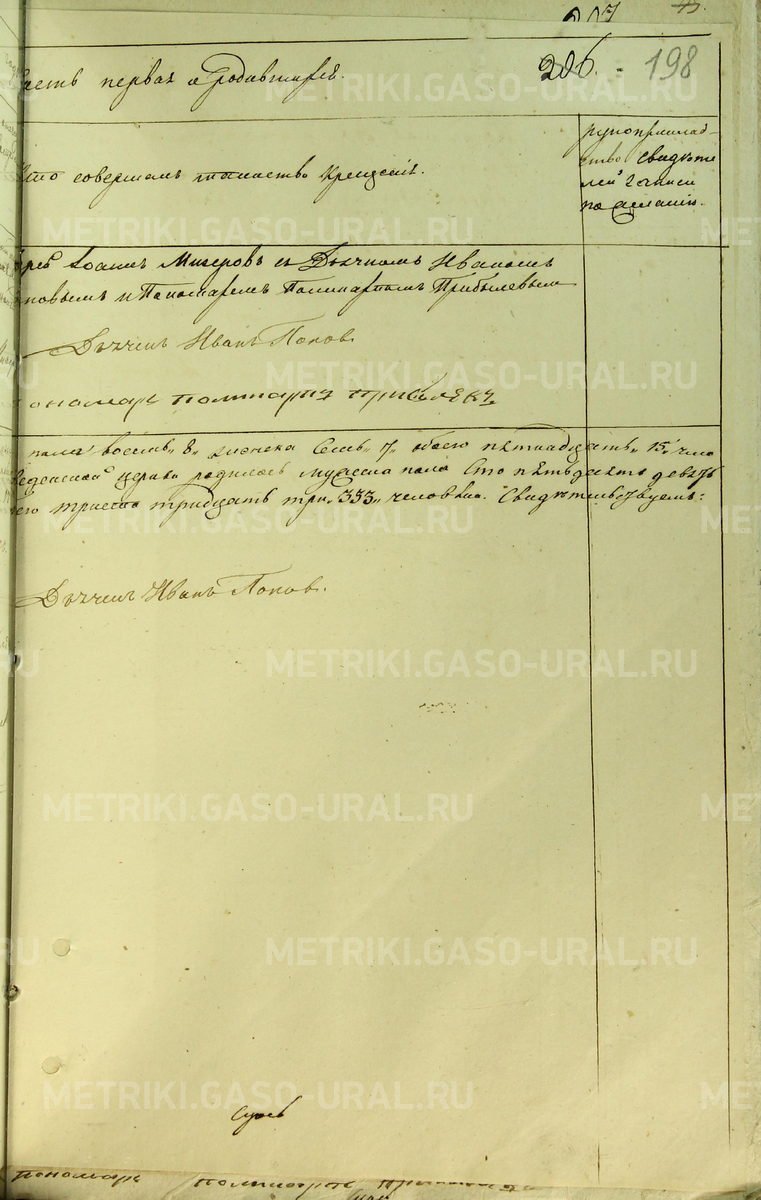 207
45.
206. - 198
асть первая о Родившихся.
Кто совершалъ таинство крещенія.
рукоприклад-
ство свидѣте
лей записи
по желанію.
ерей Іоаннъ Мизеровъ съ Дьячкомъ Иваномъ
поповымъ и Пономаремъ Поликарпомъ Прибылевымъ
Дьячекъ Иванъ Поповъ
ономарь поликарпъ прибылевъ
пола восемь „8„ женска Семь „7„ обоего пятнадцать „15„ чело
веденской церкви родилось мужеска пола Сто пятьдесятъ девять
его триста тридцать три „333„ человѣка. Свидѣтельствуемъ:
Дьячекъ Иванъ Поповъ.
METRIKI.GASO-URAL.RU
пономарь поликарпъ